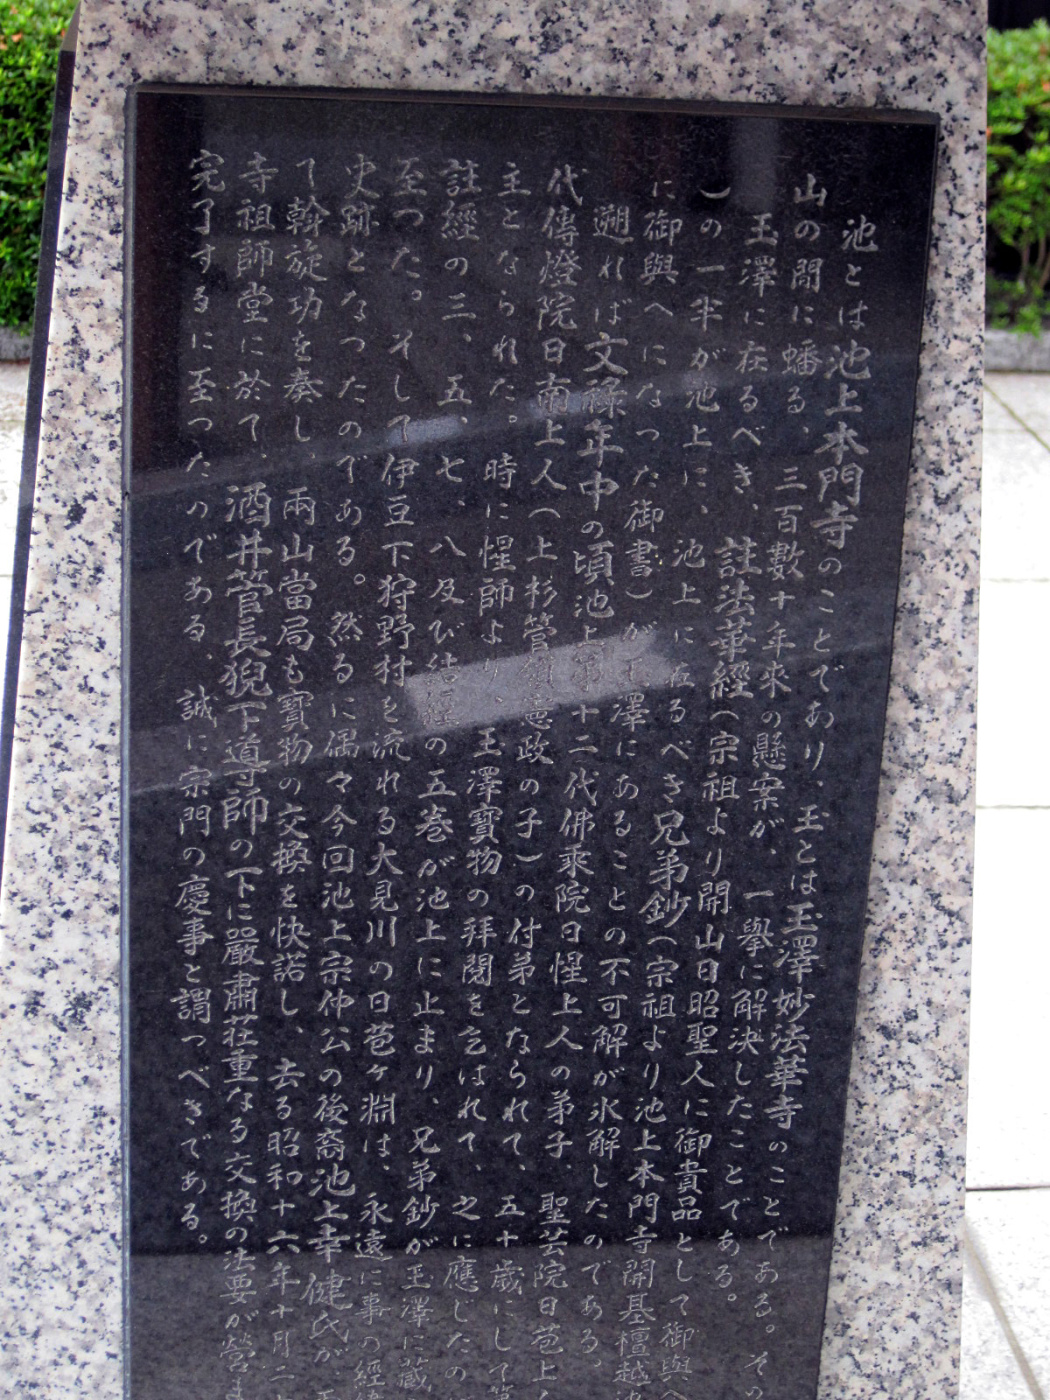 池とは池上本門寺のことであり、玉とは玉澤妙法華寺のことである。その
山の間に蟠る、三百數十年来の懸案が、一擧に解決したことである。
玉澤に在るべき、註法華經(宗祖より開山日昭聖人に御貴品として御與へ
)の一半が池上に、池上に在るべき兄弟鈔(宗祖より池上本門寺開基檀越池
に御與へになった御書)が玉澤にあることの不可解が氷解したのである。
遡れば文禄年中の頃池上第十二代佛乘院日惺上人の弟子、聖芸院日苞上
代傳燈院日南上人(上杉管領憲政の子)の付弟となられて、五十歳にして
主となられた。時に惺師より、玉澤寶物の拝閲を乞はれて、之に應じたの
註經の三、五、七、八及び結經の五巻が池上に止まり、兄弟鈔が玉澤に蔵
至つた。そして伊豆下狩野村を流れる大見川の日苞ヶ淵は、永遠に事の經緯
史跡となつたのである。然るに偶々今回池上宗仲公の後裔池上幸健氏が
て斡旋功を奏し、兩山當局も寶物の交換を快諾し、去る昭和十六年十月二
寺祖師堂に於て、酒井管長猊下導師の下に嚴肅荘重なる交換の法要が營ま
完了するに至つたのである、誠に宗門の慶事と謂つべきである。